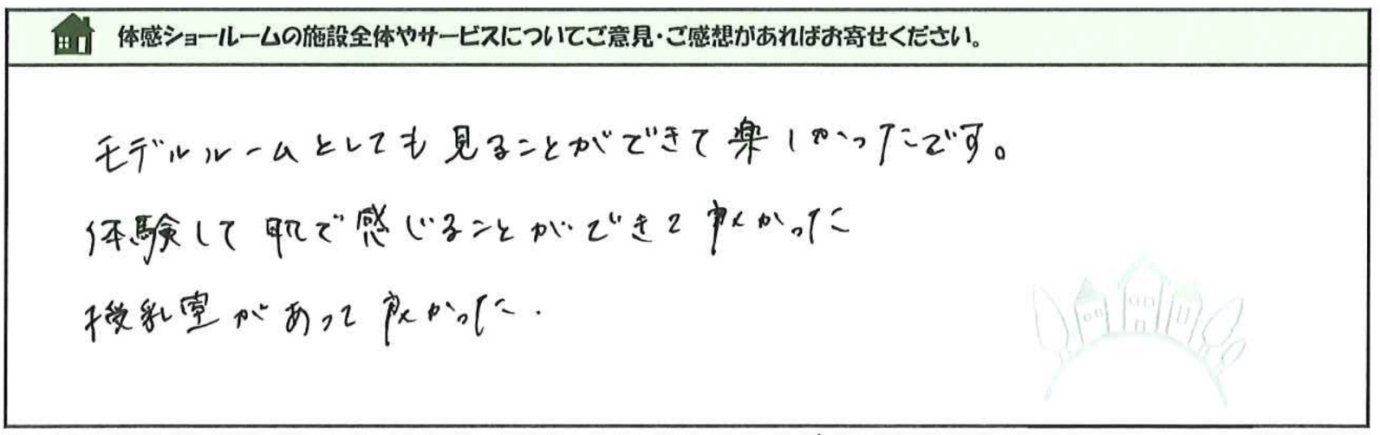 体感ショールームの施設全体やサービスについてご意見・ご感想があればお寄せください。
モデルルームとしても見ることができて楽しかったです。
体験して肌で感じることができて良かった
授乳室があって良かった.